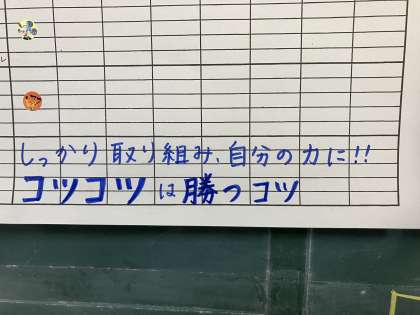 しっかり取り組み、自分の力に!!
コツコツは勝つコツ